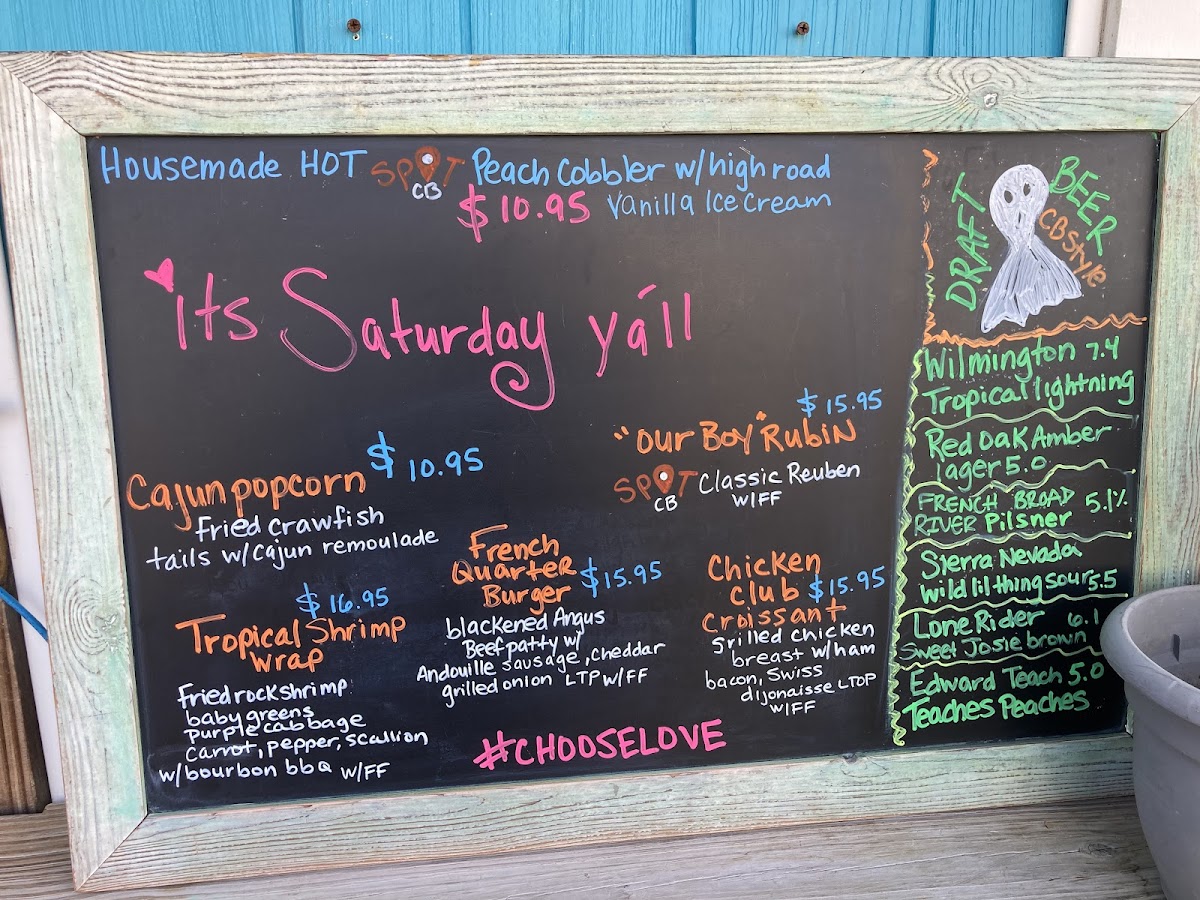 Housemade HOT SPOT CB Peach Cobbler w/high road
$10.95 Vanilla Ice Cream
its Saturday ya'll
Cajun popcorn $10.95
fried crawfish
tails w/cajun remoulade
$16.95
Tropical Shrimp
wrap
fried rock shrimp
baby greens
purple cabbage
carrot, pepper, scallion
w/bourbon bbq w/FF
French
Quarter
Burger $15.95
blackened Angus
Beef patty w/
Andouille sausage, cheddar
grilled onion LTP w/FF
$15.95
"our Boy" Rubin
SPOT CB Classic Reuben
w/FF
Chicken
club $15.95
croissant
grilled chicken
breast w/ham
bacon, swiss
dijonaisse LTOP
w/FF
#CHOOSELOVE
DRAFT BEER
CB Style
Wilmington 7.4
Tropical lightning
Red Oak Amber
lager 5.0
FRENCH BROAD 5.1%
RIVER Pilsner
Sierra Nevada
wild lil thing sour 5.5
Lone Rider 6.1
Sweet Josie brown
Edward Teach 5.0
Teaches Peaches